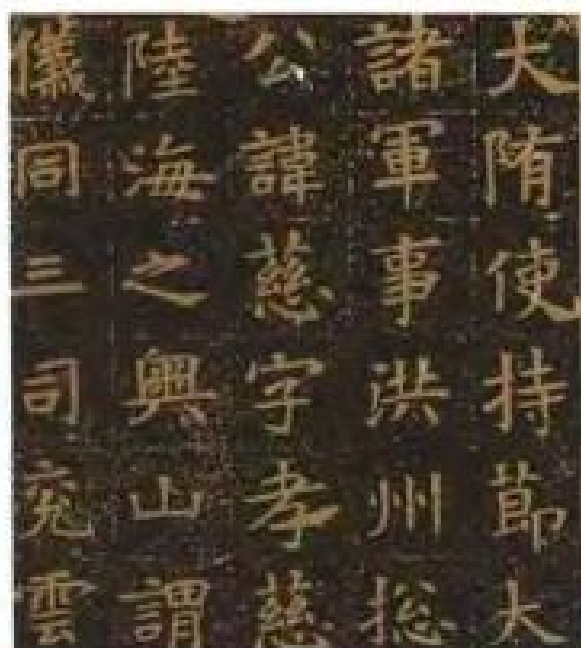 大隋使持節大
諸軍事洪州捴
公諱慈字孝慈
陸海之興山謂
儀同三司兖雲